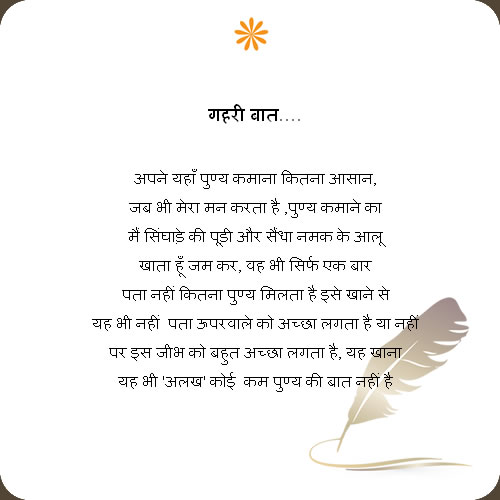 गहरी बात....
अपने यहाँ पुण्य कमाना कितना आसान,
जब भी मेरा मन करता है ,पुण्य कमाने का
मैं सिंघाड़े की पूडी और सैंधा नमक के आलू
खाता हूँ जम कर, वह भी सिर्फ एक बार
पता नहीं कितना पुण्य मिलता है इसे खाने से
यह भी नहीं पता ऊपरवाले को अच्छा लगता है या नहीं
पर इस जीभ को बहुत अच्छा लगता है, यह खाना
यह भी 'अलख' कोई कम पुण्य की बात नहीं है